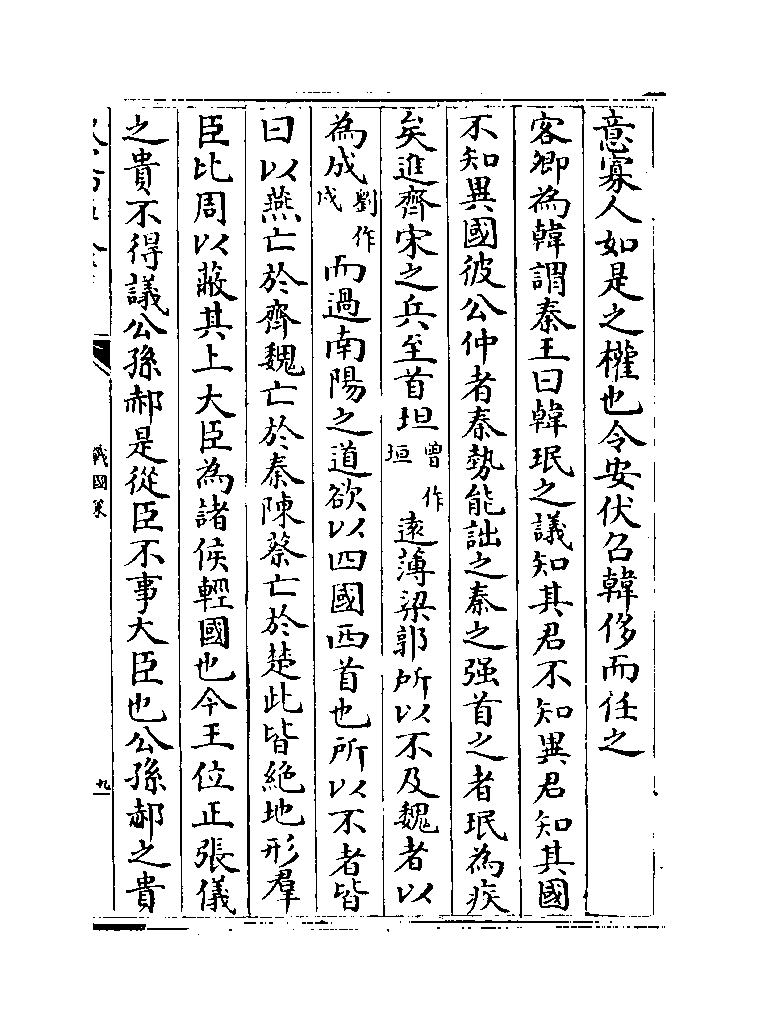 意寡人如是之權也令安伏召韓侈而任之
客卿為韓謂秦王曰韓珉之議知其君不知異君知其國
不知異國彼公仲者秦勢能詘之秦之强首之者珉為疾
矣進齊宋之兵至首坦曾作垣逺薄梁郭所以不及魏者以
為成劉作戍而過南陽之道欲以四國西首也所以不者皆
曰以燕亡於齊魏亡於秦陳蔡亡於楚此皆絶地形羣
臣比周以蔽其上大臣為諸侯輕國也今王位正張儀
之貴不得議公孫郝是從臣不事大臣也公孫郝之貴
戰國策
九